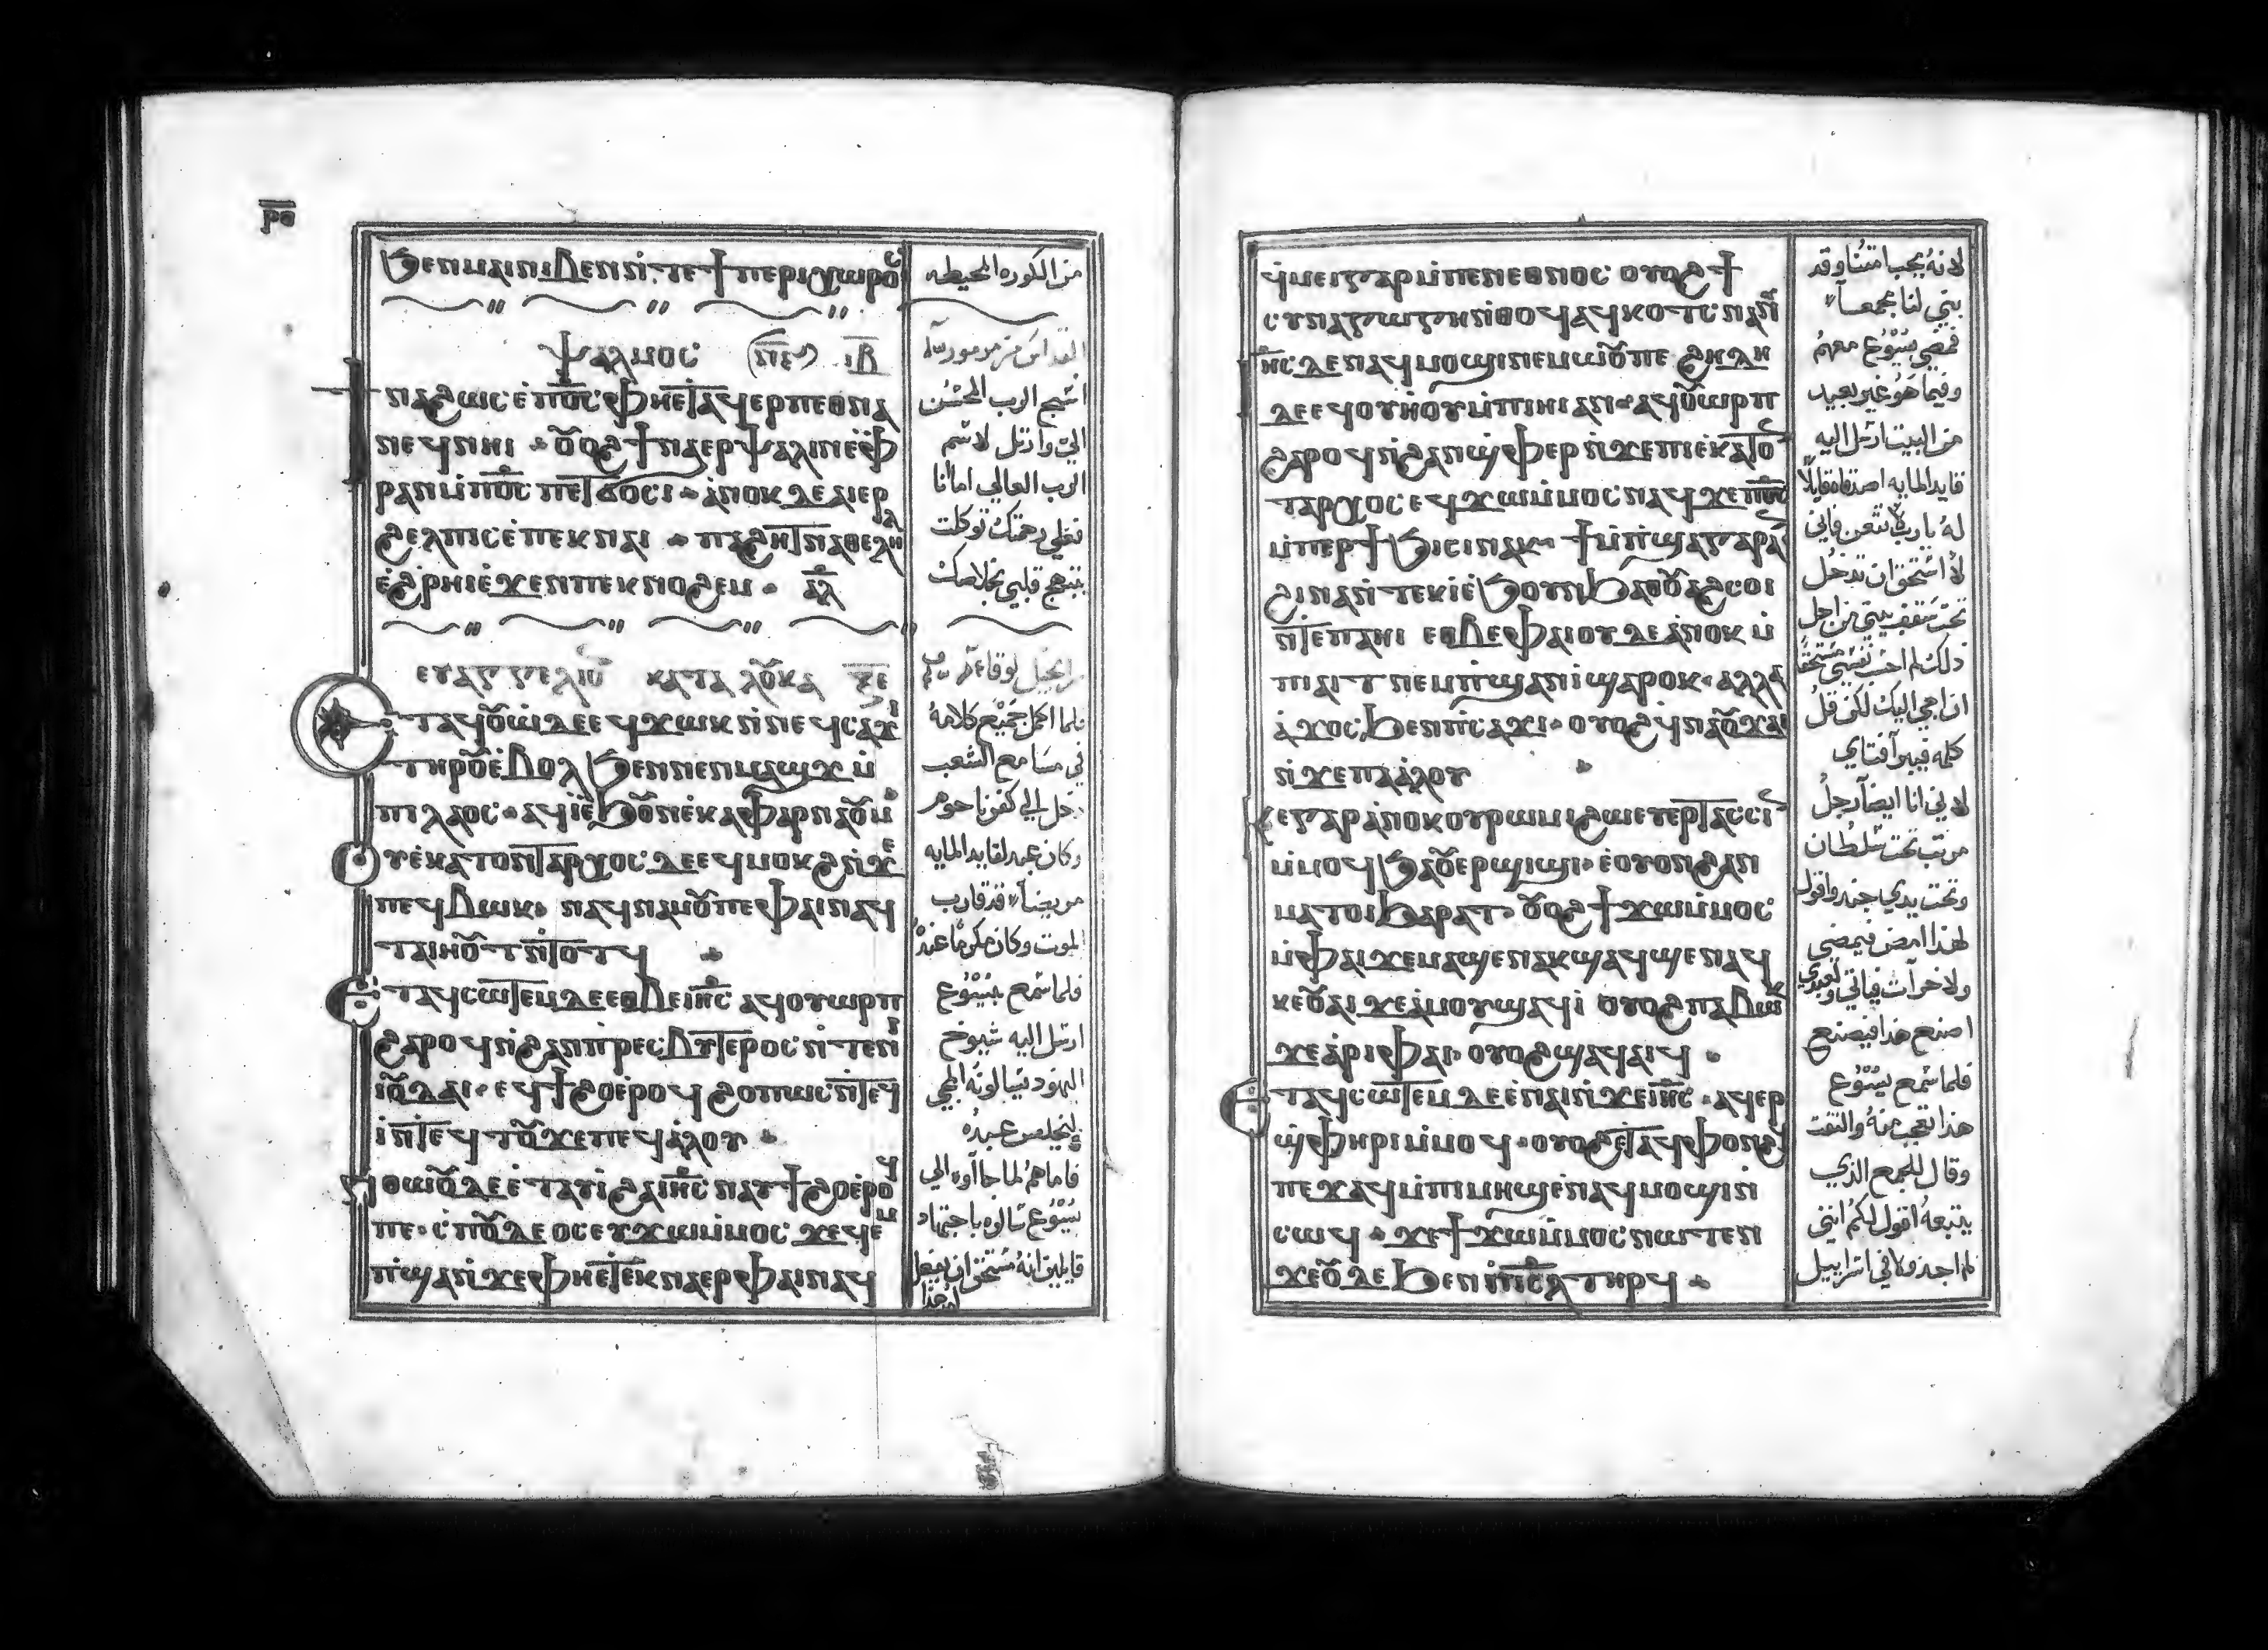 ⲣⲟ
ϧⲉⲛⲙⲁⲓⲛⲓⲃⲉⲛⲛ̀ⲧⲉϯⲡⲉⲣⲓⲭⲱⲣⲟⲥ
ⲯⲁⲗⲙⲟⲥ ⲓⲃ
ⲛⲁϩⲱⲥⲉ̀ⲡⲟ̅ⲥ̅ⲫⲏⲉⲧⲁϥⲉⲣⲡⲉⲑⲛⲁ
ⲛⲉϥⲛⲏⲓ · ⲟⲩⲟϩϯⲛⲁⲉⲣⲯⲁⲗⲓⲛⲉ̀ⲫ
ⲣⲁⲛⲙ̀ⲡⲟ̅ⲥ̅ⲡⲉⲧϭⲟⲥⲓ · ⲁ̀ⲛⲟⲕⲇⲉⲁⲓⲉⲣ
ϩⲉⲗⲡⲓⲥⲉ̀ⲡⲉⲕⲛⲁⲓ · ⲡⲁϩⲏⲧⲛⲁⲑⲉⲗⲏⲗ
ⲉ̀ϩ̀ⲣⲏⲓⲉ̀ϫⲉⲛⲡⲉⲕⲛⲟϩⲉⲙ · ⲁⲗ
ⲉⲩⲁⲅⲅⲉⲗⲓⲟⲛ ⲕⲁⲧⲁ ⲗⲟⲩⲕⲁ
ⲧⲁϥⲟⲩⲱ̀ⲇⲉⲉϥϫⲱⲕⲛ̀ⲛⲉϥⲥⲁϫⲓ
ⲧⲏⲣⲟⲩⲉ̀ⲃⲟⲗϧⲉⲛⲛⲉⲛⲙⲁϣϫⲙ̀
ⲡⲓⲗⲁⲟⲥ · ⲁϥⲓ̀ⲉ̀ϧⲟⲩⲛⲉ̀ⲕⲁⲫⲁⲣⲛⲁⲟⲩⲙ
ⲟⲩⲉ̀ⲕⲁⲧⲟⲛⲧⲁⲣⲭⲟⲥⲇⲉⲉϥⲙⲟⲕϩⲛ̀ϫⲉ
ⲡⲉϥⲃⲱⲕ · ⲛⲁϥⲛⲁⲙⲟⲩⲡⲉⲫⲁⲓⲛⲁϥ
ⲧⲁⲓⲏⲟⲩⲧⲛ̀ⲧⲟⲧϥ
ⲉⲧⲁϥⲥⲱⲧⲉⲙⲇⲉⲉⲑⲃⲉⲓ̅ⲏ̅ⲥ̅ⲁϥⲟⲩⲱⲣⲡ
ϩⲁⲣⲟϥⲛ̀ϩⲁⲛⲡ̀ⲣⲉⲥⲃⲩⲧⲉⲣⲟⲥⲛ̀ⲧⲉⲛⲓ
ⲓⲟⲩⲇⲁⲓ · ⲉϥϯϩⲟⲉ̀ⲣⲟϥϩⲟⲡⲱⲥⲛ̀ⲧⲉϥ
ⲓ̀ⲛⲧⲉϥⲧⲟⲩϫⲉⲡⲉϥⲁ̀ⲗⲟⲩ
ⲛⲑⲱⲟⲩⲇⲉⲉ̀ⲧⲁⲩⲓ̀ϩⲁⲓ̅ⲏ̅ⲥ̅ⲛⲁⲩϯϩⲟⲉ̀ⲣⲟϥ
ⲡⲉ · ⲥ̀ⲡⲟⲩⲇⲉⲟⲥⲉⲩϫⲱⲙ̀ⲙⲟⲥϫⲉϥⲉⲙ
ⲡϣⲁⲛ̀ϫⲉⲫⲏⲉⲧⲉⲕⲛⲁⲉⲣⲫⲁⲓⲛⲁϥ
من الكوره المحيطه
اسبح الرب المحسن
الي وارتل لاسم
الرب العالي اما انا
فعلي رحمتك توكلت
يبتهج قلبي بخلاصك
فلما اكمل جميع كلامه
في مسامع الشعب
دخل الي كفرناحوم
وكان عبد لقايد المايه
مريضاً قد قارب
الموت وكان مكرماً عنده
فلما سمع بيسوع
ارسل اليه شيوخ
اليهود يسالونه المجي
ليخلص عبده
فاما هم لما جاآوا الي
يسوع سالوه باجتهاد
قايلين انه مستحق ان يفعل
له هذا
ϥ̀ⲙⲉⲓⲅⲁⲣⲙ̀ⲡⲉⲛⲉⲑⲛⲟⲥ ⲟⲩⲟϩϯ
ⲥⲩⲛⲁⲅⲱⲅⲏⲛ̀ⲑⲟϥⲁϥⲕⲟⲧⲥⲛⲁⲛ
ⲓ̅ⲏ̅ⲥ̅ⲇⲉⲛⲁϥⲙⲟϣⲓⲛⲉⲙⲱⲟⲩⲡⲉϩⲏⲇⲏ
ⲇⲉⲉϥⲟⲩⲏⲟⲩⲙ̀ⲡⲓⲏⲓⲁⲛ · ⲁϥⲟⲩⲱⲣⲡ
ϩⲁⲣⲟϥⲛ̀ϩⲁⲛϣ̀ⲫⲉⲣⲛ̀ϫⲉⲡⲓⲉ̀ⲕⲁⲧⲟⲛ
ⲧⲁⲣⲭⲟⲥⲉϥϫⲱⲙ̀ⲙⲟⲥⲛⲁϥϫⲉⲡⲟ̅ⲥ̅
ⲙ̀ⲡⲉⲣϯϧⲓⲥⲓⲛⲁⲕ ϯⲙ̀ⲡ̀ϣⲁⲅⲁⲣⲁⲛ
ϩⲓⲛⲁⲛ̀ⲧⲉⲕⲓ̀ⲉ̀ϧⲟⲩⲛϧⲁⲑⲟⲩⲁϩⲥⲟⲓ
ⲛ̀ⲧⲉⲡⲁⲏⲓ ⲉⲑⲃⲉⲫⲁⲓⲟⲩⲇⲉⲁ̀ⲛⲟⲕⲙ̀
ⲡⲓⲁⲓⲧⲛⲉⲙⲡ̀ϣⲁⲛⲓϣⲁⲣⲟⲕ · ⲁⲗⲗⲁ
ⲁ̀ϫⲟⲥϧⲉⲛⲡ̀ⲥⲁϫⲓ · ⲟⲩⲟϩϥ̀ⲛⲁⲟⲩϫⲁⲓ
ⲛ̀ϫⲉⲡⲁⲁ̀ⲗⲟⲩ
ⲕⲉⲅⲁⲣⲁ̀ⲛⲟⲕⲟⲩⲣⲱⲙⲓϩⲱⲉⲩⲉⲣⲧⲁⲥⲥⲓⲛ
ⲙ̀ⲙⲟϥϧⲁⲟⲩⲉⲣϣⲓϣⲓ · ⲉ̀ⲟⲩⲟⲛϩⲁⲛ
ⲙⲁⲧⲟⲓϧⲁⲣⲁⲧ · ⲟⲩⲟϩϯϫⲱⲙ̀ⲙⲟⲥ
ⲙ̀ⲫⲁⲓϫⲉⲙⲁϣⲉⲛⲁⲕϣⲁϥϣⲉⲛⲁϥ
ⲕⲉⲟⲩⲁⲓϫⲉⲁ̀ⲙⲟⲩϣⲁϥⲓ̀ ⲟⲩⲟϩⲡⲁⲃⲱⲕ
ϫⲉⲁ̀ⲣⲓⲫⲁⲓ · ⲟⲩⲟϩϣⲁϥⲁⲓϥ
ⲉⲧⲁϥⲥⲱⲧⲉⲙⲇⲉⲉ̀ⲛⲁⲓⲛ̀ϫⲉⲓ̅ⲏ̅ⲥ̅ · ⲁϥⲉⲣ
ϣ̀ⲫⲏⲣⲓⲙ̀ⲙⲟϥ · ⲟⲩⲟϩⲉⲧⲁϥⲫⲟⲛϩϥ
ⲡⲉϫⲁϥⲙ̀ⲡⲓⲙⲏϣⲉ̀ⲛⲁϥⲙⲟϣⲓⲛ̀
ⲥⲱϥ · ϫⲉϯϫⲱⲙ̀ⲙⲟⲥⲛⲱⲧⲉⲛ
ϫⲉⲟⲩⲇⲉϧⲉⲛⲡⲓ̅ⲥ̅ⲗ̅ⲧⲏⲣϥ
لانه يحب امتنا وقد
بني لنا مجمعاً
فمضي يسوع معهم
وفيما هو غير بعيد
من البيت ارسل اليه
قايد المايه اصدقاه قايلاً
له يارب لا تتعن فاني
لا استحق ان تدخل
تحت سقف بيتي من اجل
ذلك لم احسب نفسي مستحقاً
ان اجي اليك لكن قل
كلمه فيبرآ فتاي
لاني انا ايضاً رجل
مرتب تحت سلطان
وتحت يدي جند واقول
لهذا امض فيمضي
ولاخر آت فياتي ولعبدي
اصنع هذا فيصنع
فلما سمع يسوع
هذا تعجب منه والتفت
وقال للجمع الذي
يتبعه اقول لكم انني
لم اجد ولا في اسراييل